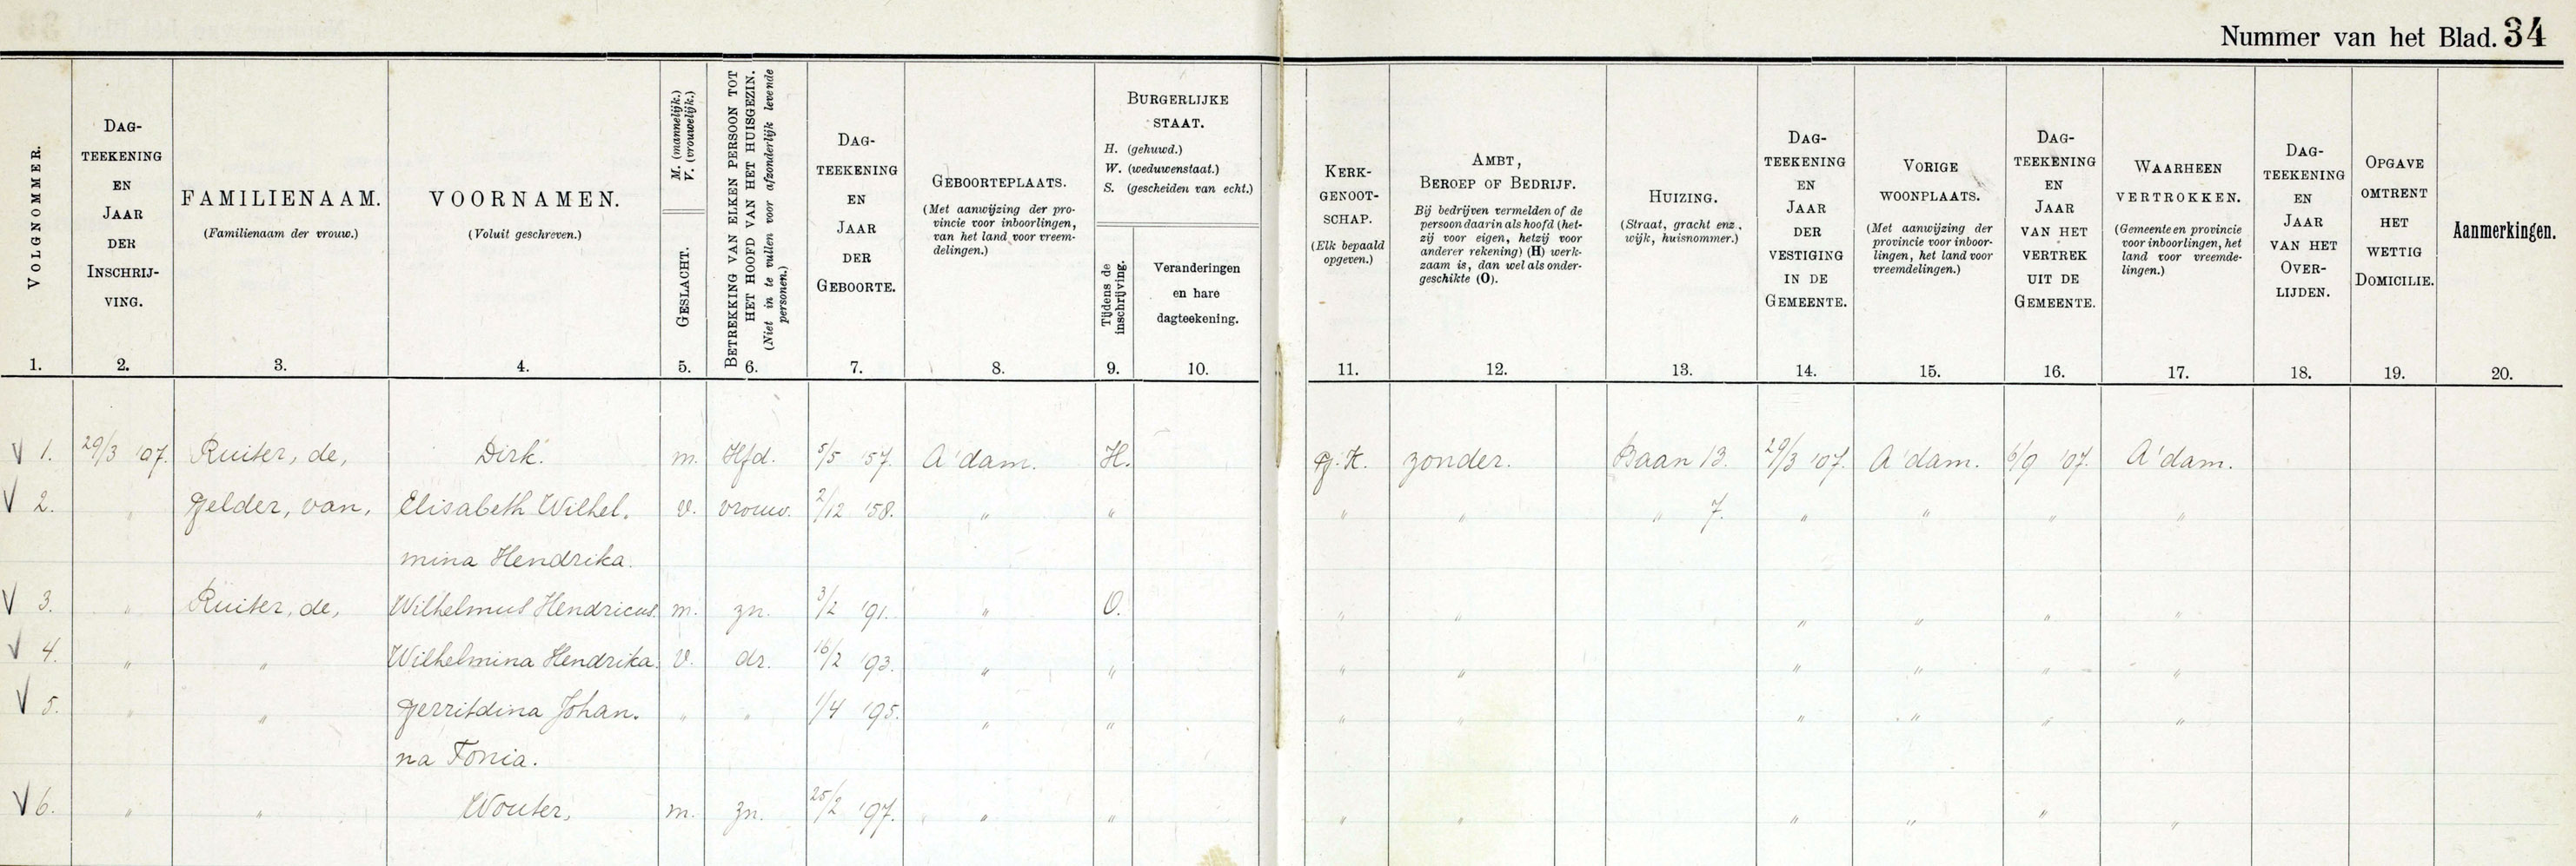 Nummer van het Blad. 34
VOLGNOMMER.
DAG-
TEEKENING
EN
JAAR
DER
INSCHRIJ-
VING.
FAMILIENAAM.
(Familienaam der vrouw.)
VOORNAMEN.
(Voluit geschreven.)
M. (mannelijk.)
V. (vrouwelijk.)
GESLACHT.
BETREKKING VAN ELKEN PERSOON TOT
HET HOOFD VAN HET HUISGEZIN.
(Niet in te vullen voor afzonderlijk levende
personen.)
DAG-
TEEKENING
EN
JAAR
DER
GEBOORTE.
GEBOORTEPLAATS.
(Met aanwijzing der pro-
vincie voor inboorlingen,
van het land voor vreem-
delingen.)
BURGERLIJKE
STAAT.
H. (gehuwd.)
W. (weduwenstaat.)
S. (gescheiden van echt.)
Tijdens de
inschrijving.
Veranderingen
en hare
dagteekening.
KERK-
GENOOT-
SCHAP.
(Elk bepaald
opgeven.)
AMBT,
BEROEP OF BEDRIJF.
Bij bedrijven vermelden of de
persoon daarin als hoofd (het-
zij voor eigen, hetzij voor
anderer rekening) (H) werk-
zaam is, dan wel als onder-
geschikte (O).
HUIZING.
(Straat, gracht enz.,
wijk, huisnommer.)
DAG-
TEEKENING
EN
JAAR
DER
VESTIGING
IN DE
GEMEENTE.
VORIGE
WOONPLAATS.
(Met aanwijzing der
provincie voor inboor-
lingen, het land voor
vreemdelingen.)
DAG-
TEEKENING
EN
JAAR
VAN HET
VERTREK
UIT DE
GEMEENTE.
WAARHEEN
VERTROKKEN.
(Gemeente en provincie
voor inboorlingen, het
land voor vreemde-
lingen.)
DAG-
TEEKENING
EN
JAAR
VAN HET
OVER-
LIJDEN.
OPGAVE
OMTRENT
HET
WETTIG
DOMICILIE.
Aanmerkingen.
1. 2. 3. 4. 5. 6. 7. 8. 9. 10. 11. 12. 13. 14. 15. 16. 17. 18. 19. 20.
V 1. 29/3 '07. Ruiter, de, Dirk. m. Hfd. 5/5 '57. A'dam. H. G.K. zonder. Baan 13. 29/3 '07. A'dam. 6/9 '07. A'dam.
V 2. " Gelder, van, Elisabeth Wilhel. v. vrouw. 2/12 '58. " " " " " 7. " " " "
mina Hendrika.
V 3. " Ruiter, de, Wilhelmus Hendricus. m. zn. 3/2 '91. " O. " " " " " "
V 4. " " Wilhelmina Hendrika. v. dr. 16/2 '93. " " " " " " " "
V 5. " " Gerritdina Johan. " " 1/4 '95. " " " " " " " "
na Tonia.
V 6. " " Wouter, m. zn. 25/2 '97. " " " " " " " "